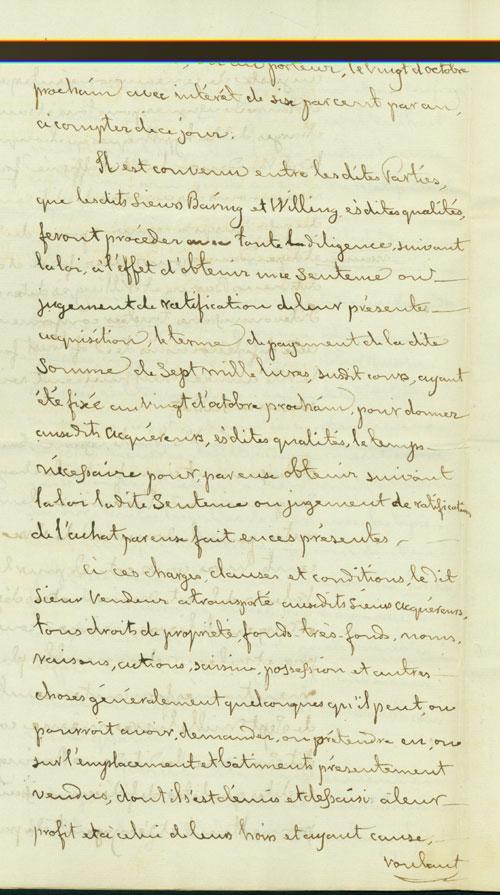 au porteur, le vingt d'octobre
prochain avec intérêt de six par cent par an,
à compter de ce jour.
Il est convenu entre les dites Parties,
que les dits Sieurs Baring et Willing èsdites qualités,
feront procéder toute diligence, suivant
la loi, à l'effet d'obtenir une Sentence ou
jugement de ratification de leur présente
acquisition, le terme de payement de la dite
Somme de Sept mille livres, susdit cours, ayant
été fixé au vingt d'octobre prochain, pour donner
auxdits Acquéreurs, èsdites qualités, le temps
nécessaire pour, par eux obtenir suivant
la loi ladite Sentence ou jugement de ratification
de l'achat par eux fait en ces présentes.
à ces charges, clauses et conditions, le dit
Sieur Vendeur a transporté auxdits Sieurs Acquéreurs,
tous droits de propriété, fonds, très-fonds, noms,
raisons, actions, saisine, possession et autres
choses généralement quelconques qu'il peut, ou
pourroit avoir, demander, ou prétendre en, ou
sur l'emplacement et bâtiments présentement
vendus, dont il s'est démis et dessaisi à leur
profit et à celui de leurs hoirs et ayant cause,
voulant